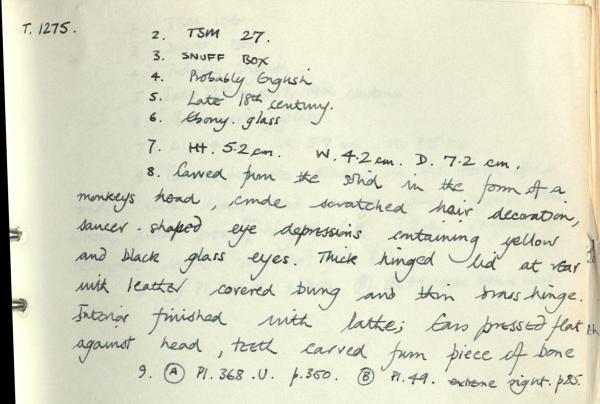 T. 1275.
2. TSM 27.
3. SNUFF BOX
4. Probably English
5. Late 18th century.
6. Ebony. glass
7. Ht. 5.2 cm. W. 4.2 cm. D. 7.2 cm.
8. Carved from the solid in the form of a
monkeys head, crude scratched hair decoration,
saucer-shaped eye depressions containing yellow
and black glass eyes. Thick hinged lid at rear
with leather covered bung and thin brass hinge.
Interior finished with lathe; Ears pressed flat
against head, teeth carved from piece of bone
9. (A) Pl. 368.U. p.350. (B) Pl. 49. extreme right. p.85.